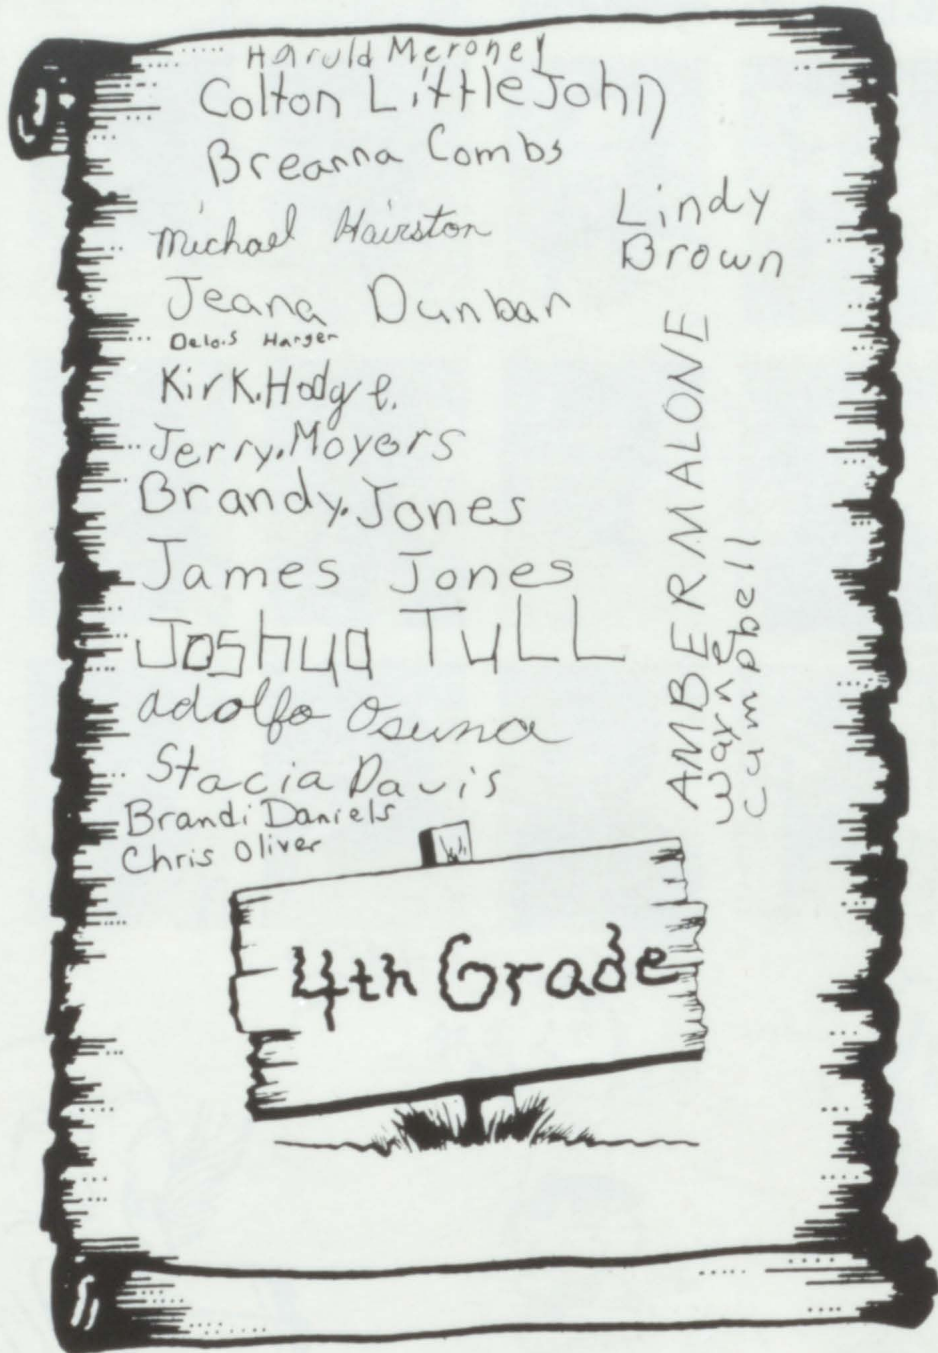 Haruld Meroney
Colton LittleJohn
Breanna Combs
Michael Hairston
Lindy
Brown
Jeana Dunbar
Delois Harger
Kirk.Hodge.
Jerry.Moyers
Brandy.Jones
James Jones
Joshua TuLL
adolfo Osuna
Stacia Davis
Brandi Daniels
Chris Oliver
AMBER MALONE
Warne
Cumpbell
4th Grade